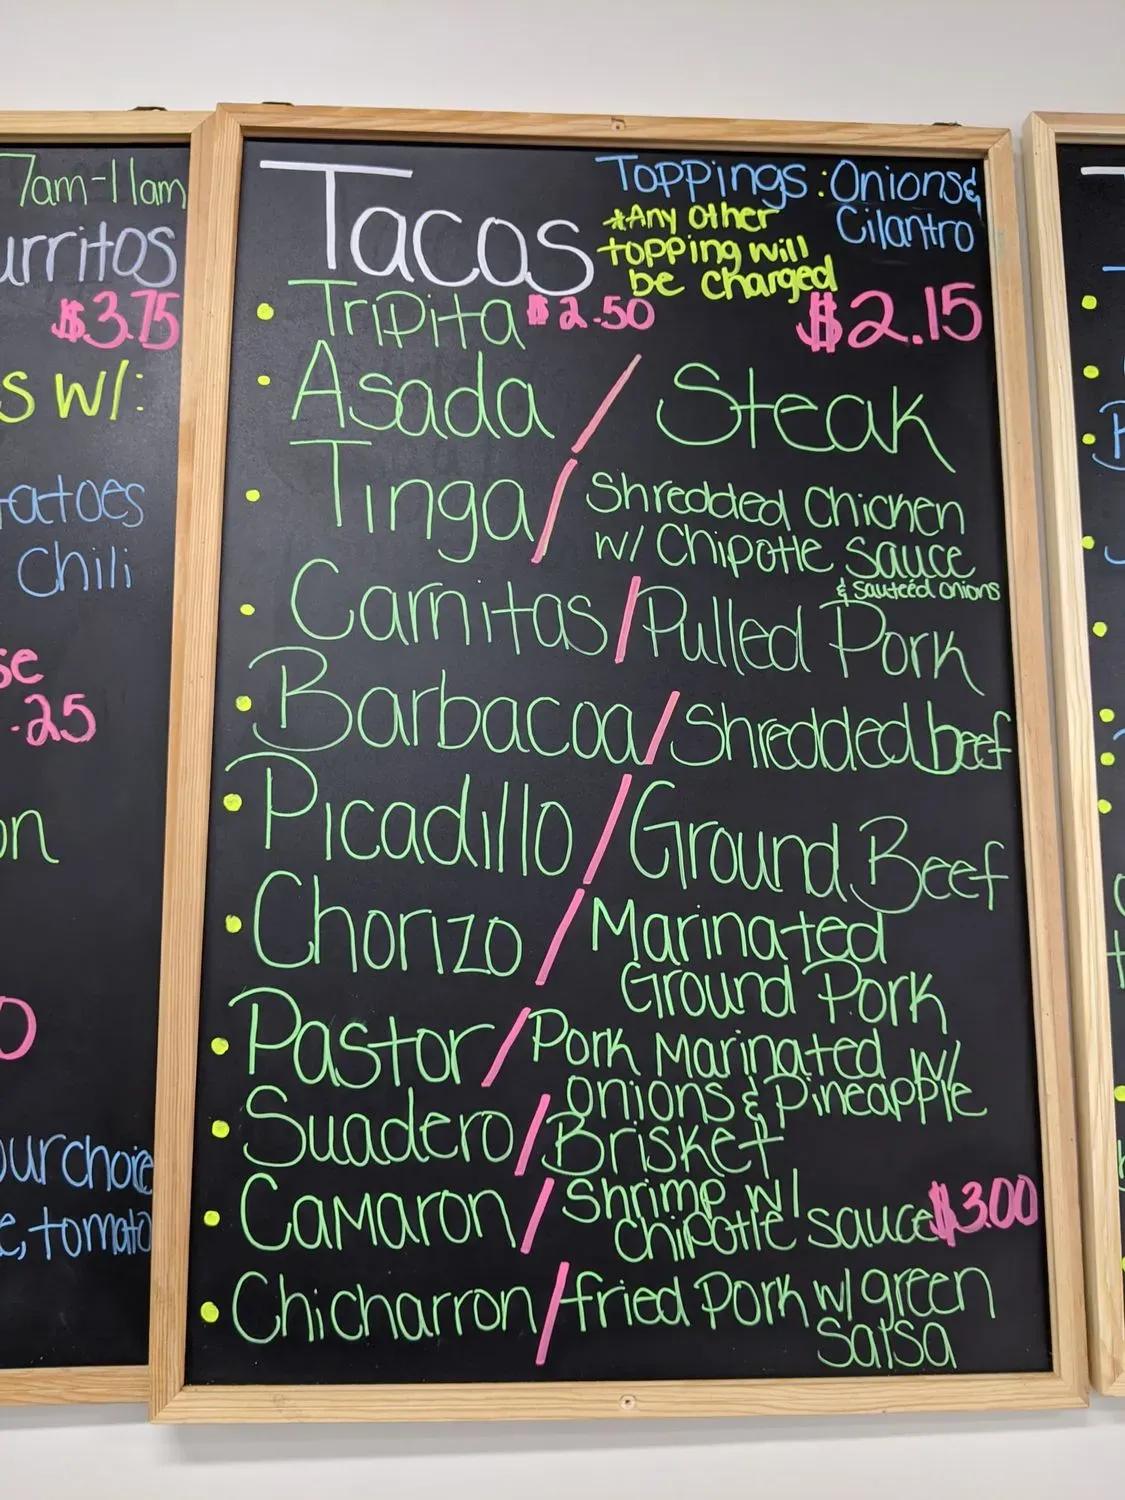 7am-11am
urritos
$3.75
s w/:
atoes
Chili
se
.25
on
0
our choice
e, tomato
Tacos
Toppings: Onions &
Cilantro
*Any other
topping will
be charged
Tripita $2.50
$2.15
Asada / Steak
Tinga / Shredded Chicken
w/ Chipotle Sauce
& sauteéd onions
Carnitas / Pulled Pork
Barbacoa / Shredded beef
Picadillo / Ground Beef
Chorizo / Marinated
Ground Pork
Pastor / Pork Marinated w/
onions & Pineapple
Suadero / Brisket
Camaron / Shrimp w/
chipotle sauce $3.00
Chicharron / fried Pork w/ green
Salsa